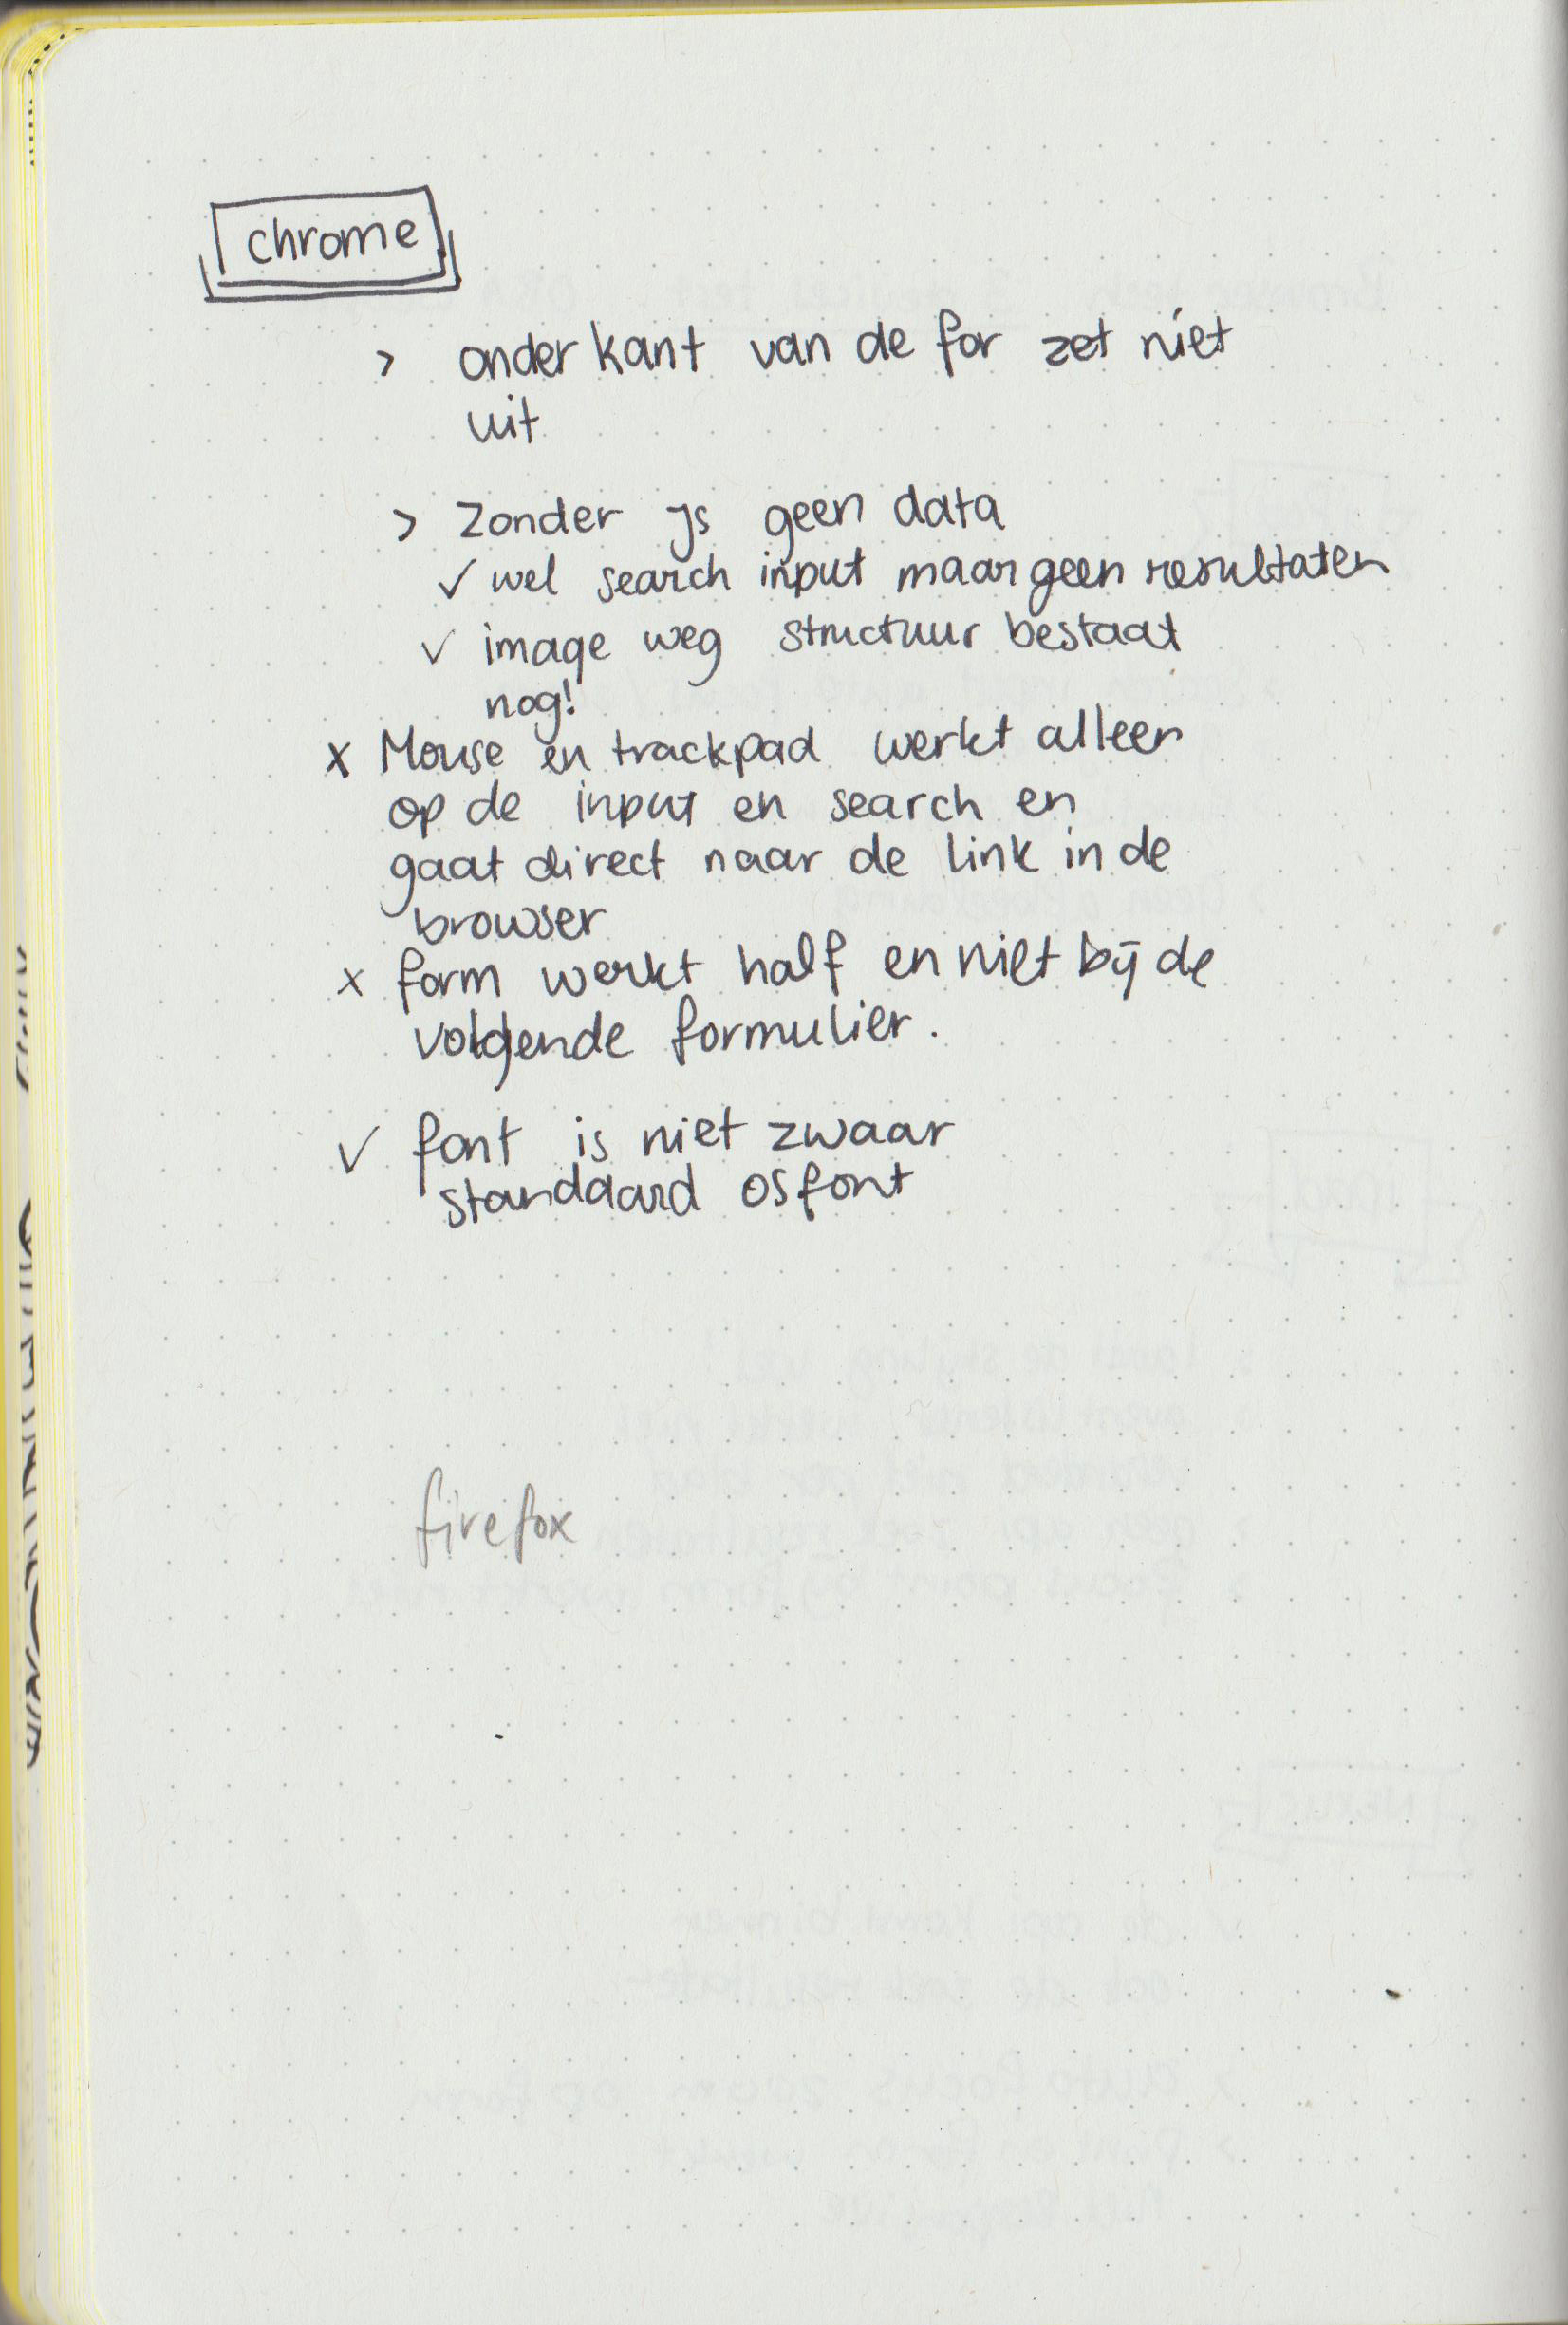 chrome
> onderkant van de for zet niet
uit
> Zonder js geen data
✓ wel search input maar geen resultaten
✓ image weg structuur bestaat
nog!
x Mouse en trackpad werkt alleen
op de input en search en
gaat direct naar de link in de
browser
x form werkt half en niet bij de
volgende formulier.
✓ font is niet zwaar
standaard os font
firefox